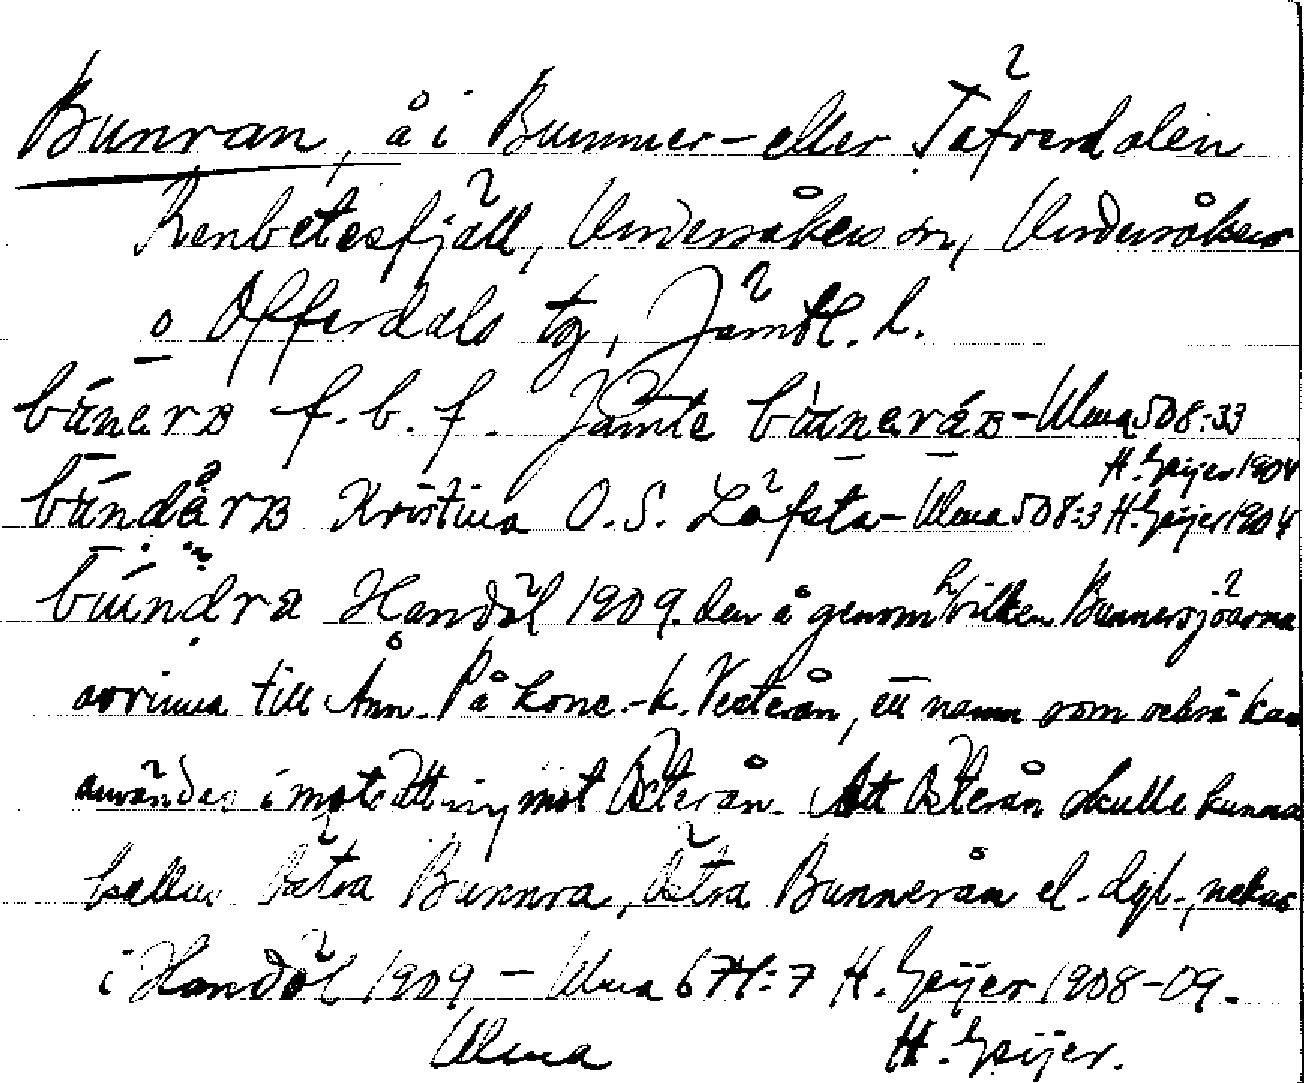 Bunran, å i Bummer- eller Täfverdalen
Renbetesfjäll, Undersåkers sn, Undersåkers
o Offerdals tg, Jämtl. L.
f. b. f. Jämte - Ulma 508:33
H. Geijer 1904
Kristina O. S. Löfsta - Ulma 508:3 H. Geijer 1904
Handöl 1909. den å genom hvilken Bunnersjöarna
avrinna till Ånn. På konc.-k. Vesterån, ett namn som också kan
användas i motsättning mot Österån. Att Österån skulle kunna
kallas Östra Bunnra, Östra Bunnerån el. dyl., nekas
i Handöl 1909 - Ulma 671:7 H. Geijer 1908-09.
Ulma H. Geijer.